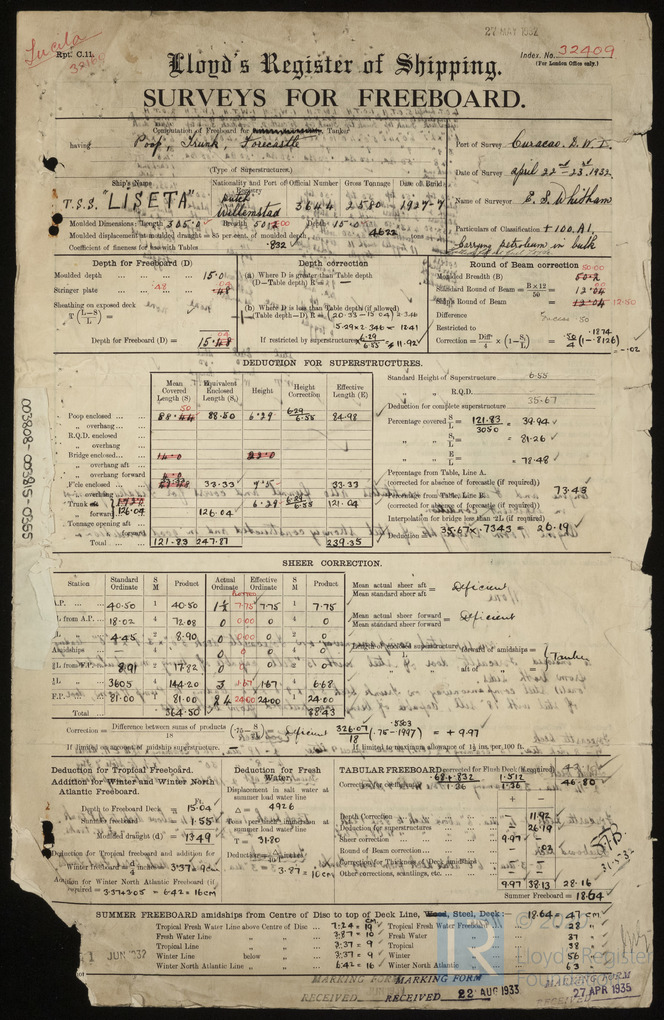 27 MAY 1932
Lucila
32165
Rpt. C.11.
Index. No. 32409
(For London Office only.)
Lloyd's Register of Shipping.
SURVEYS FOR FREEBOARD.
Computation of Freeboard for Tanker
having Poop, Trunk, Forecastle
(Type of Superstructures.)
Port of Survey Curacao. D.W.I.
Date of Survey April 22nd - 23rd 1932.
Name of Surveyor E. S. Whitham
Particulars of Classification +100.A1,
Carrying petroleum in bulk
Ship's Name
Nationality and Port of Registry
Official Number
Gross Tonnage
Date of Build
T.S.S. "LISETA"
Dutch
Willemstad
3644
2580
1927-7
Moulded Dimensions: Length 305.0 Breadth 50.2 Depth 15.0
Moulded displacement at moulded draught = 85 per cent. of moulded depth 4622 tons
Coefficient of fineness for use with Tables .832
Depth for Freeboard (D)
Moulded depth 15.0
Stringer plate .48
Sheathing on exposed deck
T (L-S/L) =
Depth for Freeboard (D) = 15.48
Depth correction
(a) Where D is greater than Table depth
(D—Table depth) R = —
(b) Where D is less than Table depth (if allowed)
(Table depth—D) R = (20.33-15.04) 2.346
5.29 x 2.346 = 12.41
If restricted by superstructures x 6.29/6.55 = 11.92
Round of Beam correction
50.00
Moulded Breadth (B) 50.2
Standard Round of Beam = B x 12 / 50 = 12.04
Ship's Round of Beam = 12.04 12.50
Difference Excess .50
Restricted to
Correction = Diff/4 x (1-S1/L) = .50/4 (1-.8126) .1874
= -.02
DEDUCTION FOR SUPERSTRUCTURES.
Mean Covered Length (S)
Equivalent Enclosed Length (S1)
Height
Height Correction
Effective Length (E)
Poop enclosed 88.44 88.50 6.29 6.29/6.55 84.98
„ overhang
R.Q.D. enclosed
„ overhang
Bridge enclosed
„ overhang aft
„ overhang forward
F'cle enclosed 33.33 33.33 7.5 33.33
„ overhang
Trunk aft
„ forward 126.04 126.04 6.29 6.29/6.55 121.04
Tonnage opening aft
„ forward
Total 121.83 247.87 239.35
Standard Height of Superstructure 6.55
„ „ R.Q.D.
Deduction for complete superstructure 35.67
Percentage covered S/L = 121.83/3050 = 39.94
„ S1/L = 81.26
„ E/L = 78.48
Percentage from Table, Line A.
(corrected for absence of forecastle (if required)) 73.43
Percentage from Table, Line B.
(corrected for absence of forecastle (if required))
Interpolation for bridge less than .2L (if required)
Deduction = 35.67 x .7343 = 26.19
SHEER CORRECTION.
Station
Standard Ordinate
S M
Product
Actual Ordinate
Effective Ordinate
S M
Product
A.P. 40.50 1 40.50 7.75 7.75 1 7.75
⅙L from A.P. 18.02 4 72.08 0 0.00 4 0
⅓L „ 4.45 2 8.90 0 0.00 2 0
Amidships — 4 — 0 0 4
⅓L from F.P. 8.91 2 17.82 0 0 2
⅙L „ 36.05 4 144.20 3 1.67 1.67 4 6.68
F.P. 81.00 1 81.00 24 24.00 24.00 1 24.00
Total 364.50 38.43
Mean actual sheer aft / Mean standard sheer aft = Deficient
Mean actual sheer forward / Mean standard sheer forward = Deficient
Length of enclosed superstructure forward of amidships =
„ „ aft of „ = Tanker
Correction = Difference between sums of products / 18 (.75 - S/2L) = Deficient 326.07/18 (.75-.1997) .5503 = + 9.97
If limited on account of midship superstructure. —
If limited to maximum allowance of 1½ ins. per 100 ft.
Deduction for Tropical Freeboard.
Addition for Winter and Winter North Atlantic Freeboard.
Depth to Freeboard Deck = 15.04
Summer freeboard = 1.55
Moulded draught (d) = 13.49
Deduction for Tropical freeboard and addition for
Winter freeboard = d/4 = 3.37 = 9 cm
Addition for Winter North Atlantic Freeboard (if required) = 3.37 + 3.05 = 6.42 = 16 cm
Deduction for Fresh Water.
Displacement in salt water at summer load water line
Δ = 4926
Tons per inch immersion at summer load water line
T = 31.80
Deduction = Δ/40T inches
= 3.87 = 10 cm
TABULAR FREEBOARD corrected for Flush Deck (if required) 43
Correction for coefficient .68+.832 / 1.36 = 1.512 / 1.36 46.80
+ —
Depth Correction — 11.92
Deduction for superstructures — 26.19
Sheer correction 9.97
Round of Beam correction
Correction for Thickness of Deck amidships
Other corrections, scantlings, etc.
9.97 38.13 28.16
Summer Freeboard = 18.64
31.5.32
SUMMER FREEBOARD amidships from Centre of Disc to top of Deck Line, Wood, Steel, Deck : 18.64 = 47 cm
Tropical Fresh Water Line above Centre of Disc 7.24 = 19 cm
Fresh Water Line „ „ 3.87 = 10
Tropical Line „ „ 3.37 = 9
Winter Line below „ 3.37 = 9
Winter North Atlantic Line „ „ 6.42 = 16
Tropical Fresh Water Freeboard 28
Fresh Water „ 37
Tropical „ 38
Winter „ 56
Winter North Atlantic „ 63
1 JUN 1932
MARKING FORM
RECEIVED
MARKING FORM
RECEIVED 22 AUG 1933
MARKING FORM
27 APR 1935
RECEIVED
003808-003815-0355
LR
Lloyd's Register
Foundation